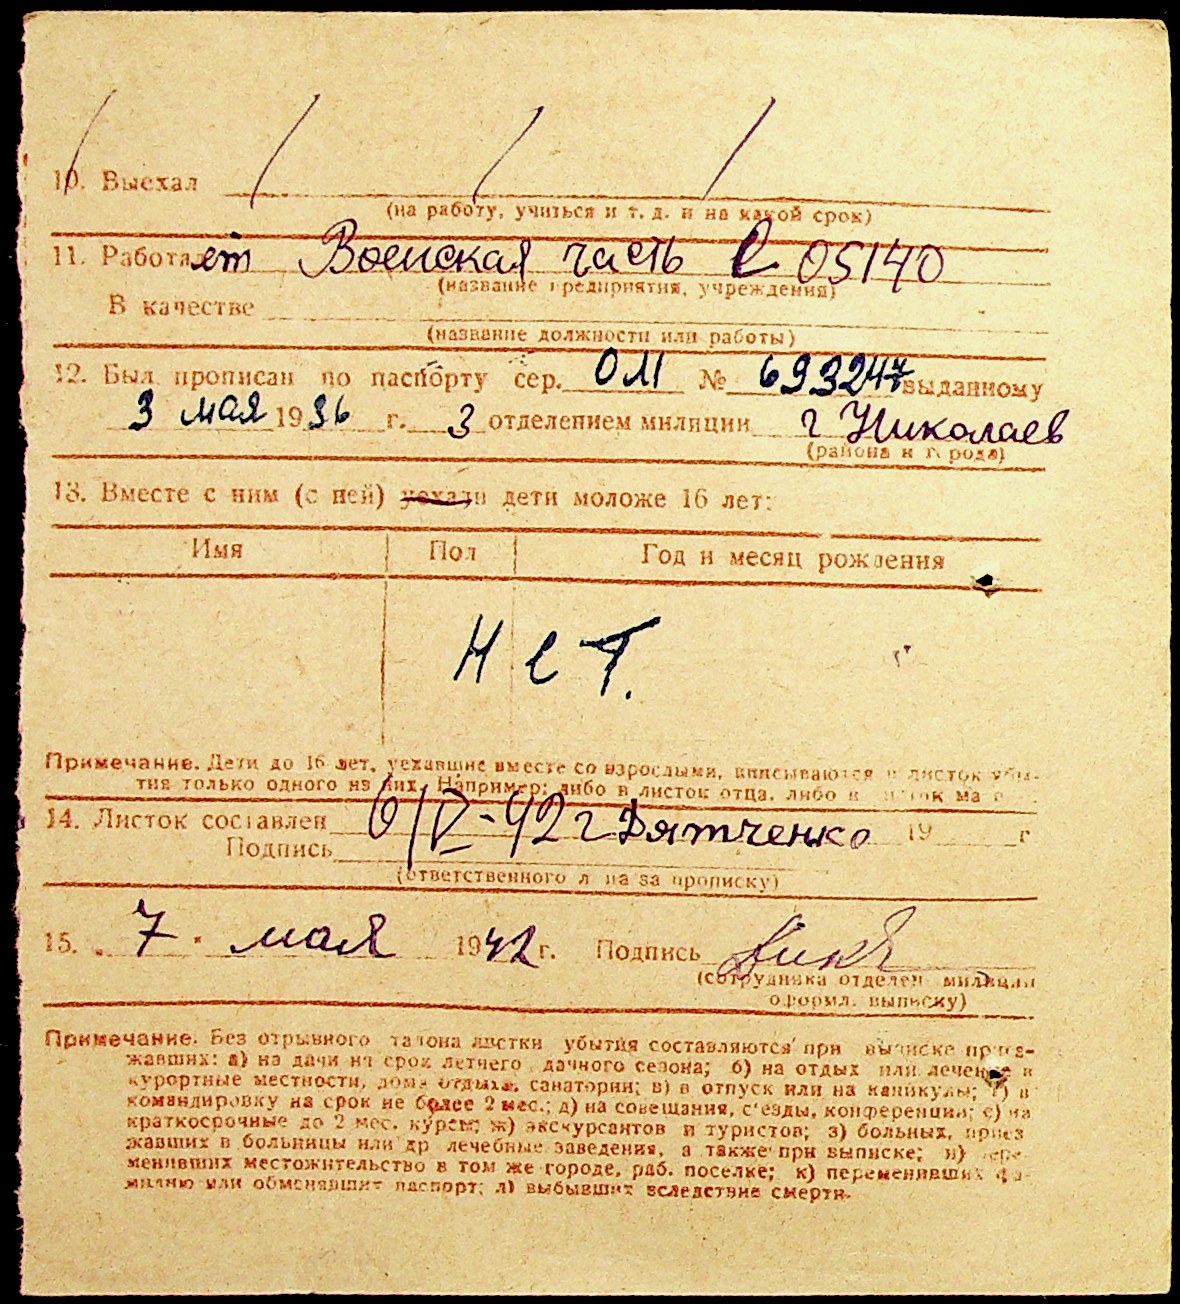 10. Выехал
(на работу, учиться и т. д. и на какой срок)
11. Работает Воинская часть 05140
(название предприятия, учреждения)
В качестве
(название должности или работы)
12. Был прописан по паспорту сер. ОМ № 693247 выданному
3 мая 1936 г. 3 отделением милиции г Николаев
(района и города)
13. Вместе с ним (с ней) уехали дети моложе 16 лет:
Имя Пол Год и месяц рождения
Нет.
Примечание. Дети до 16 лет, уехавшие вместе со взрослыми, вписываются в листок убы-
тия только одного из них. Например: либо в листок отца, либо в листок ма
14. Листок составлен 6/V-42 г Дятченко 19 г
Подпись
(ответственного лица за прописку)
15. 7 мая 1942 г. Подпись
(сотрудника отделен милиции
оформл. выписку)
Примечание. Без отрывного талона листки убытия составляются при выписке приез-
жавших: а) на дачи на срок летнего дачного сезона; б) на отдых или лечение в
курортные местности, дома отдыха, санатории; в) в отпуск или на каникулы; г) в
командировку на срок не более 2 мес.; д) на совещания, с'езды, конференции; е) на
краткосрочные до 2 мес. курсы; ж) экскурсантов и туристов; з) больных, приез
жавших в больницы или др лечебные заведения, а также при выписке; и) пере-
менивших местожительство в том же городе, раб. поселке; к) переменивших фа-
милию или обменявших паспорт; л) выбывших вследствие смерти.